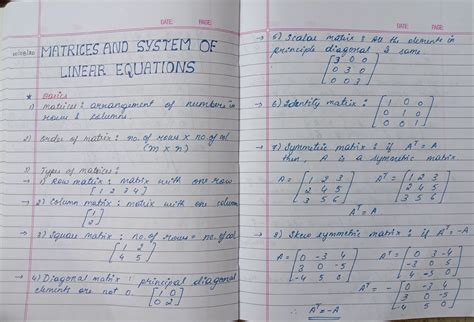 DATE: PAGE:
MATRICES AND SYSTEM OF
LINEAR EQUATIONS
* Basics
1) matrices: arrangement of numbers in
rows & columns.
2) order of matrix: no. of rows × no. of col
(m × n)
3) Types of matrices:
→ 1) Row matrix: matrix with one row
[1 2 3 4]
→ 2) Column matrix: matrix with one column
[1
2]
→ 3) Square matrix: no. of rows = no. of col.
[1 2
4 5]
→ 4) Diagonal matrix: principal diagonal
elements are not 0. [1 0
0 2]
DATE: PAGE:
→ 5) Scalar matrix: All the elements in
principle diagonal is same.
[3 0 0
0 3 0
0 0 3]
→ 6) Identity matrix: [1 0 0
0 1 0
0 0 1]
→ 7) Symmetric matrix: if Aᵀ = A
then, A is a symmetric matrix
A = [1 2 3 Aᵀ = [1 2 3
2 4 5 2 4 5
3 5 6] 3 5 6]
Aᵀ = A
→ 8) Skew symmetric matrix: if Aᵀ = -A
A = [0 -3 4 Aᵀ = [0 3 -4
3 0 -5 -3 0 5
-4 5 0] 4 -5 0]
Aᵀ = - [0 -3 4
3 0 -5
-4 5 0]
∴ Aᵀ = -A